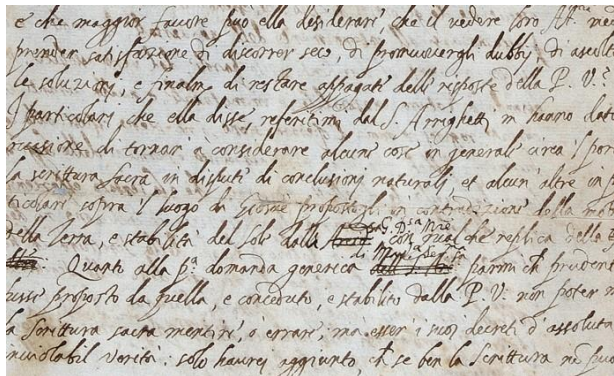 e che maggior favore può ella desiderare, che il vedere loro Alt.ze me
prender satisfazione di discorrer seco, di promuovergli dubbij, di ascolt
le soluzioni, e finalm.te di restare appagati delle risposte della P. V.:
I particolari che ella disse, referitimi dal S. Arrighetti, m hanno dato
occasione di tornar' a considerare alcune cose in generale circa 'l por
la scrittura sacra in dispute di conclusioni naturali, et alcun' altre in
ticolare sopra 'l luogo di Giosuè propostogli, in contradizione della mo
della Terra, e stabilità del Sole dalla G. D.sa M.re con qualche replica della
Quanto alla p.a domanda generica di Mad.a Ser.ma parmi ch' prudent
fusse proposto da quella, e conceduto, e stabilito dalla P. V. non poter m
la scrittura sacra mentire, o errare, ma esser' i suoi decreti d' assoluta
inviolabil verità: solo haurei aggiunto, ch' se ben la Scrittura no può